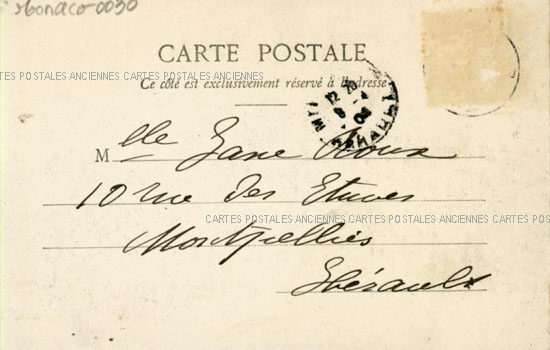 Monaco-0030
CARTE POSTALE
CARTES POSTALES ANCIENNES CARTES POSTALES ANCIENNES CARTES POSTALES ANCIENNES
Ce côté est exclusivement réservé à l'adresse
Mlle Jane Roux
10 rue des Etuves
CARTES POSTALES ANCIENNES CARTES POSTALES ANCIENNES CARTES POSTALES
Montpellier
Hérault